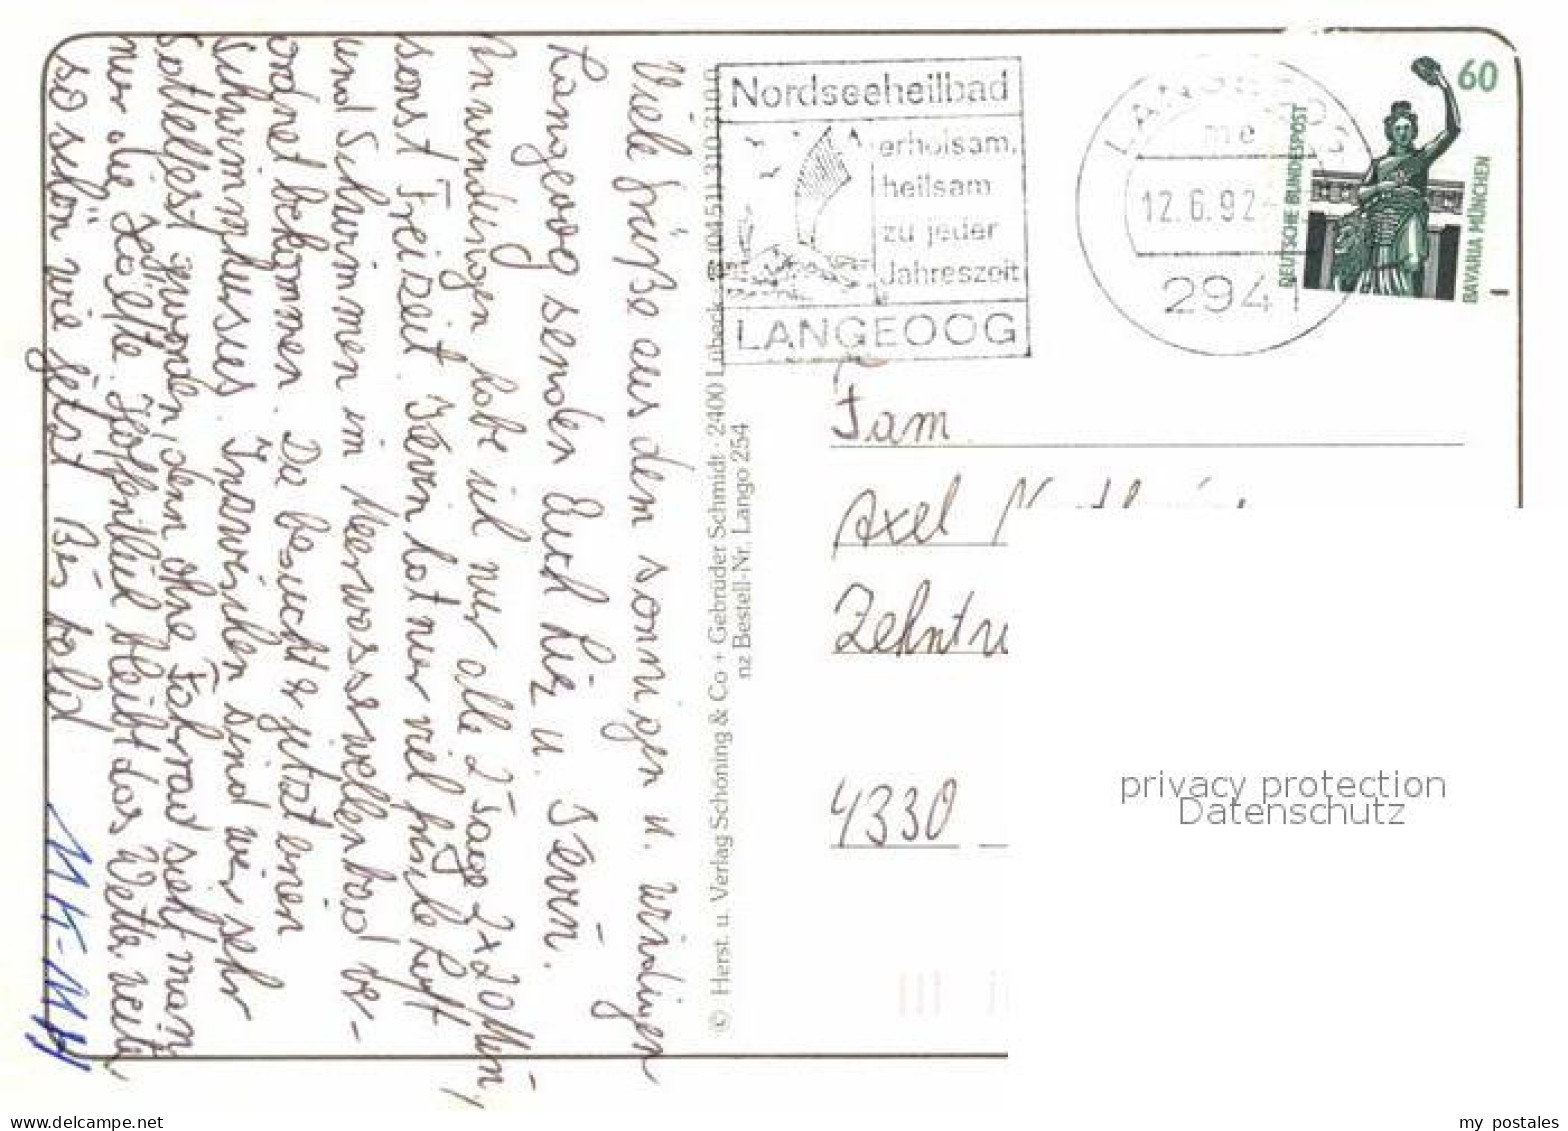 Viele Grüße aus dem sonnigen u. windigen
Langeoog senden Euch Liz u. Kevin.
Anwendungen habe ich nur alle 2 Tage 2x20 Min,
sonst Freizeit. Kevin hat nur viel frische Luft
und Schwimmen im Meerwasserwellenbad ver-
ordnet bekommen. Da besucht er jetzt einen
Schwimmkursus. Inzwischen sind wir sehr
sattelfest geworden, denn ohne Fahrrad sieht man
nur die Hälfte. Hoffentlich bleibt das Wetter weiter
so schön wie jetzt. Bis bald
© Herst. u. Verlag Schöning & Co + Gebrüder Schmidt · 2400 Lübeck · ☎ (0451) 310 310
nz Bestell-Nr. Lango 254
Nordseeheilbad
erholsam,
heilsam
zu jeder
Jahreszeit
LANGEOOG
LANGEOOG
me
12.6.92
294
60
DEUTSCHE BUNDESPOST
BAVARIA MÜNCHEN
Fam.
Axel
Zehnt
4330
privacy protection
Datenschutz
my postales